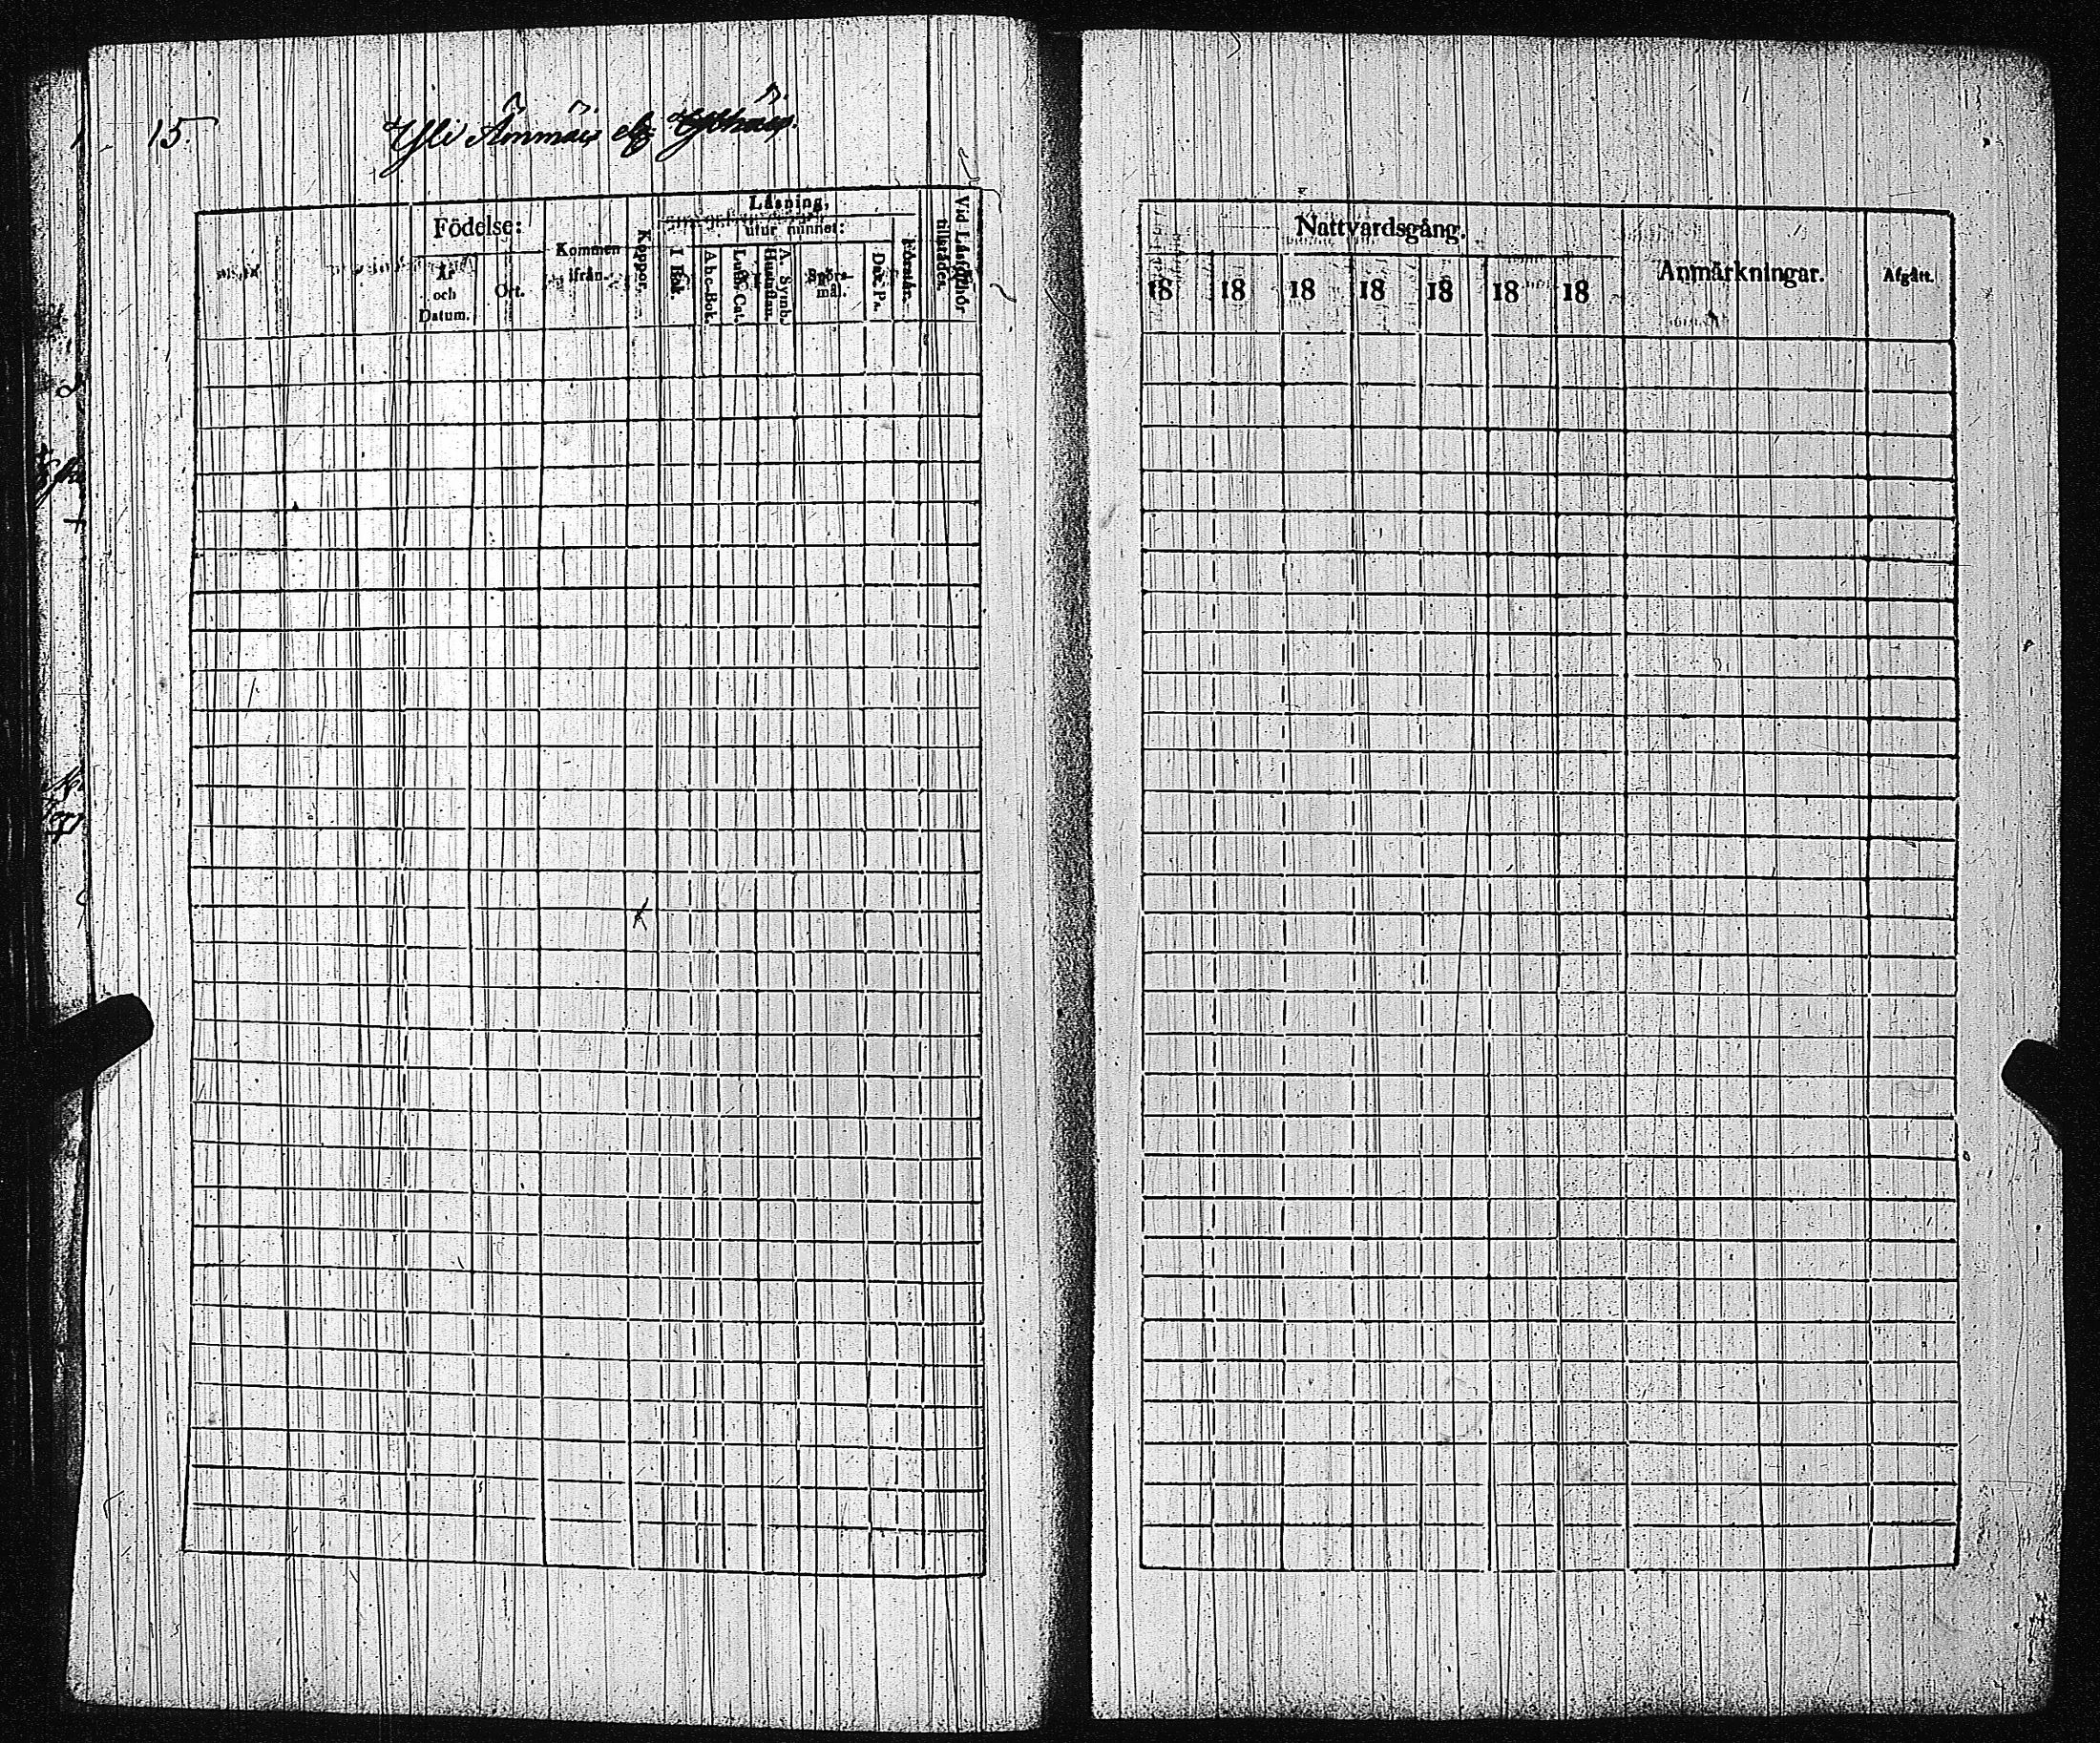 15.
Yli Ämmäis
Födelse:
År och Datum.
Ort.
Kommen ifrån.
Koppor.
Läsning,
utur minnet:
I Bok.
A b c-Bok.
Luth. Cat.
A. Symb. Hustafl.
Spörsmål.
Dav. Ps.
Förstår.
Vid Läsförhör tillstädes.
Nattvardsgång.
18 18 18 18 18 18 18
Anmärkningar.
Afgått.